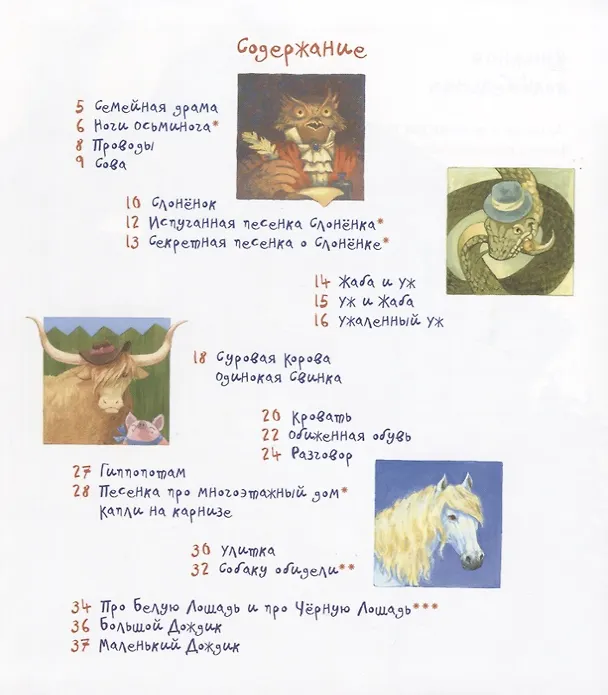 Содержание
5 Семейная драма
6 Ноги осьминога*
8 Проводы
9 Сова
10 Слонёнок
12 Испуганная песенка Слонёнка*
13 Секретная песенка о Слонёнке*
14 Жаба и уж
15 Уж и Жаба
16 Ужаленный уж
18 Суровая корова
Одинокая Свинка
20 Кровать
22 Обиженная обувь
24 Разговор
27 Гиппопотам
28 Песенка про многоэтажный дом*
Капли на карнизе
30 Улитка
32 Собаку обидели**
34 Про Белую Лошадь и про Чёрную Лошадь***
36 Большой Дождик
37 Маленький Дождик